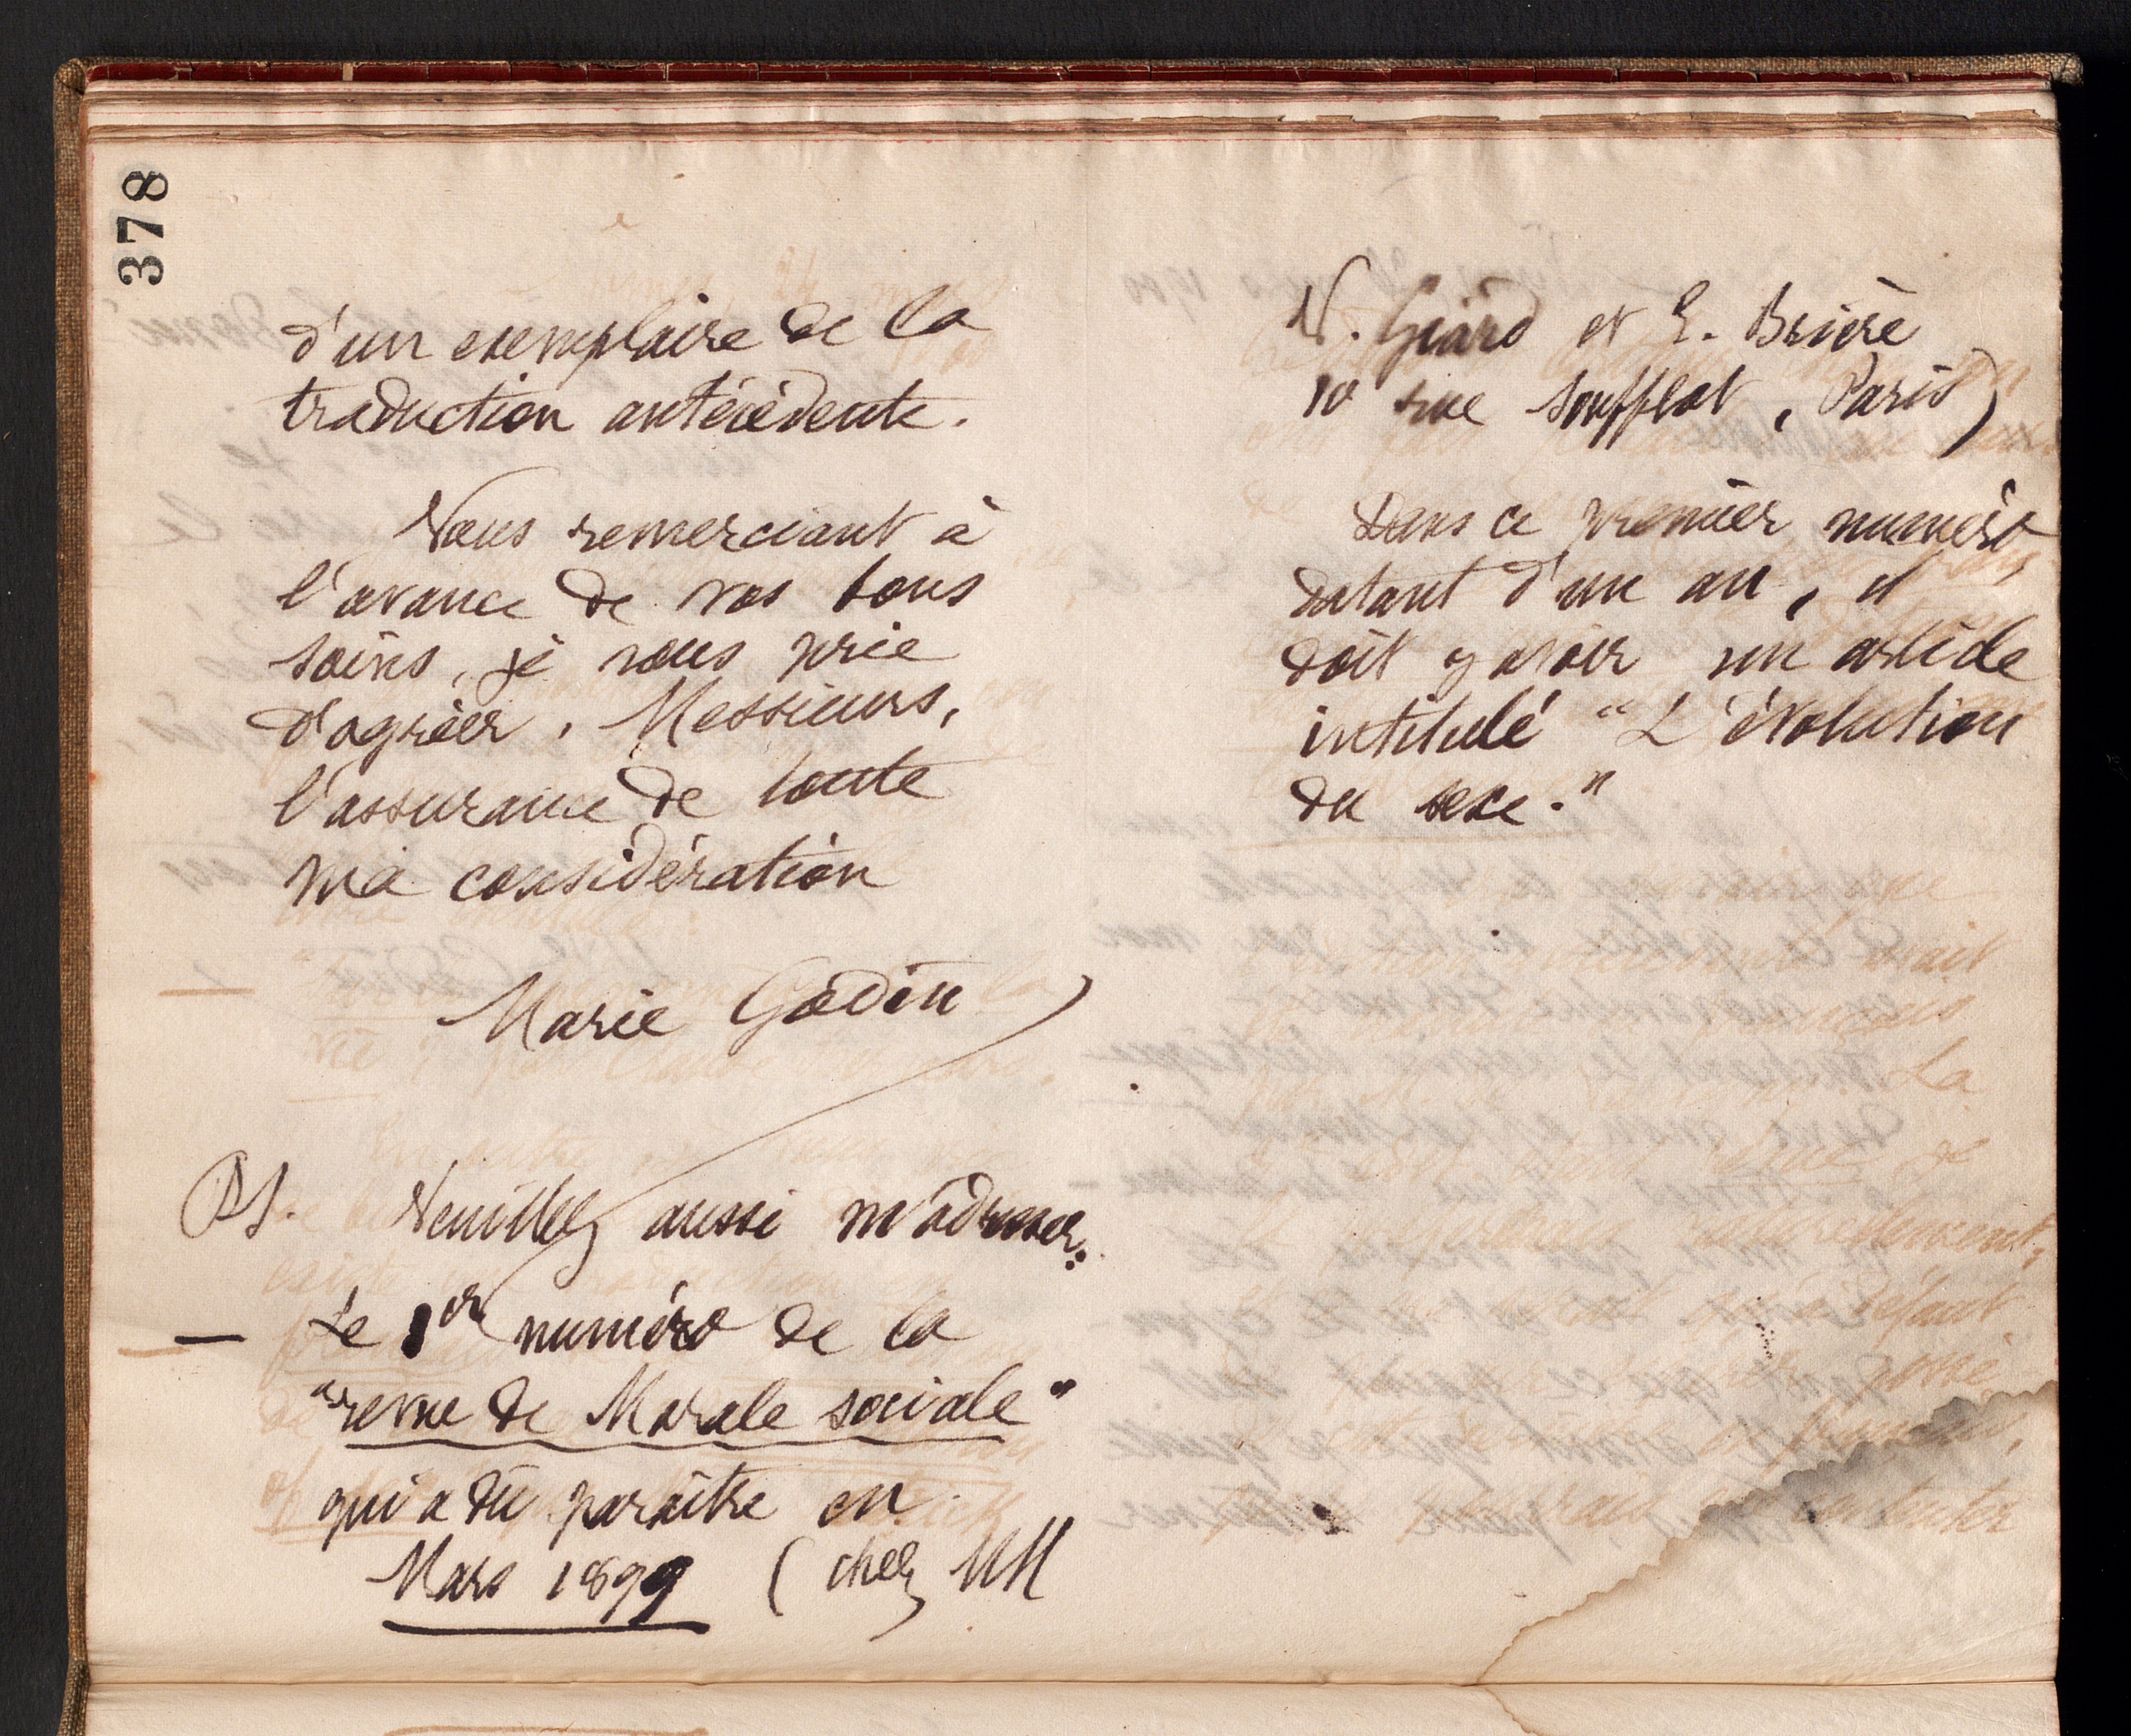 378
d'un exemplaire de la
traduction antécédente.
Vous remerciant à
l'avance de vos bons
soins, je vous prie
d'agréer, Messieurs,
l'assurance de toute
ma considération
Marie Godin
PS. Veuillez aussi m'adresser:
— Le 1er numéro de la
"revue de Morale sociale"
qui a dû paraître en
Mars 1899 (chez MM
V. Giard et E. Brière
10 rue Soufflot, Paris)
Dans ce premier numéro
datant d'un an, il
doit y avoir un article
intitulé "L'évolution
du sexe."